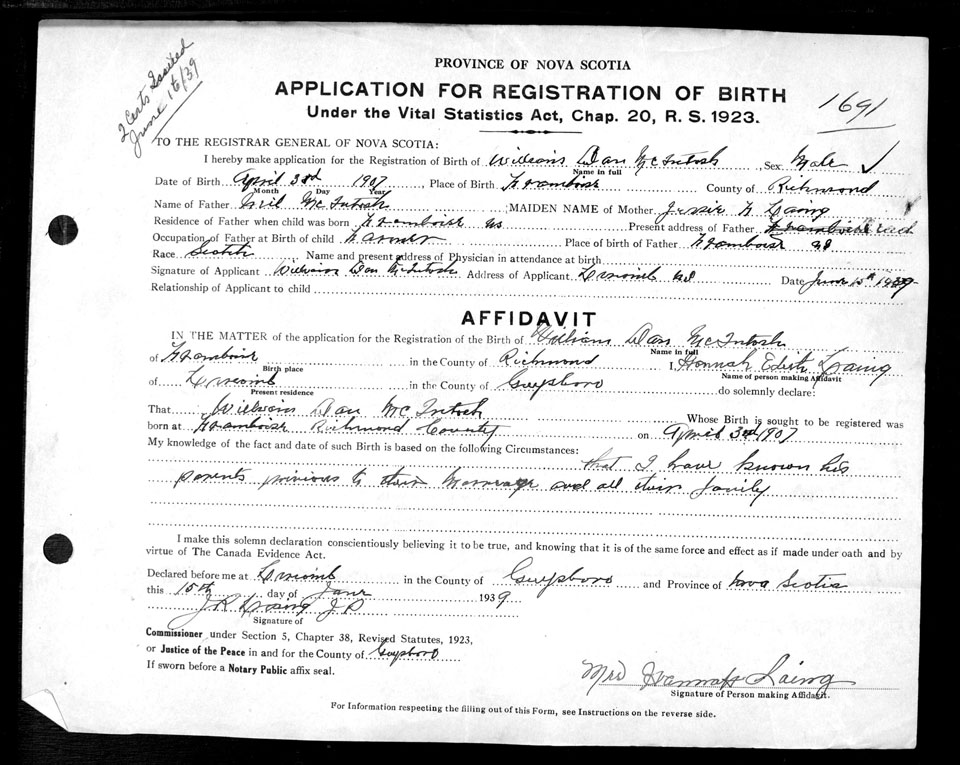 2 Certs Issued
June 16/39
PROVINCE OF NOVA SCOTIA
APPLICATION FOR REGISTRATION OF BIRTH
1691
Under the Vital Statistics Act, Chap. 20, R. S. 1923.
TO THE REGISTRAR GENERAL OF NOVA SCOTIA:
I hereby make application for the Registration of Birth of William Dan McIntosh Sex Male ✓
Name in full
Date of Birth April 3rd 1907 Place of Birth Framboise County of Richmond
Month Day Year
Name of Father Neil McIntosh MAIDEN NAME of Mother Jessie Laing
Residence of Father when child was born Framboise NS Present address of Father Framboise
Occupation of Father at Birth of child Farmer Place of birth of Father Framboise NS
Race Scotch Name and present address of Physician in attendance at birth
Signature of Applicant William Dan McIntosh Address of Applicant NS Date June 15th 1939
Relationship of Applicant to child
AFFIDAVIT
IN THE MATTER of the application for the Registration of the Birth of William Dan McIntosh
Name in full
of Framboise in the County of Richmond I, Hannah Edith Laing
Birth place Name of person making Affidavit
of in the County of Guysboro do solemnly declare:
Present residence
That William Dan McIntosh Whose Birth is sought to be registered was
born at Framboise Richmond County on April 3rd 1907
My knowledge of the fact and date of such Birth is based on the following Circumstances:
that I have known his
parents previous to their marriage and all their family
I make this solemn declaration conscientiously believing it to be true, and knowing that it is of the same force and effect as if made under oath and by
virtue of The Canada Evidence Act.
Declared before me at in the County of Guysboro and Province of Nova Scotia
this 15th day of June 1939
J.P.
Signature of
Commissioner under Section 5, Chapter 38, Revised Statutes, 1923,
or Justice of the Peace in and for the County of Guysboro
If sworn before a Notary Public affix seal.
Mrs Hannah Laing
Signature of Person making Affidavit.
For Information respecting the filling out of this Form, see Instructions on the reverse side.